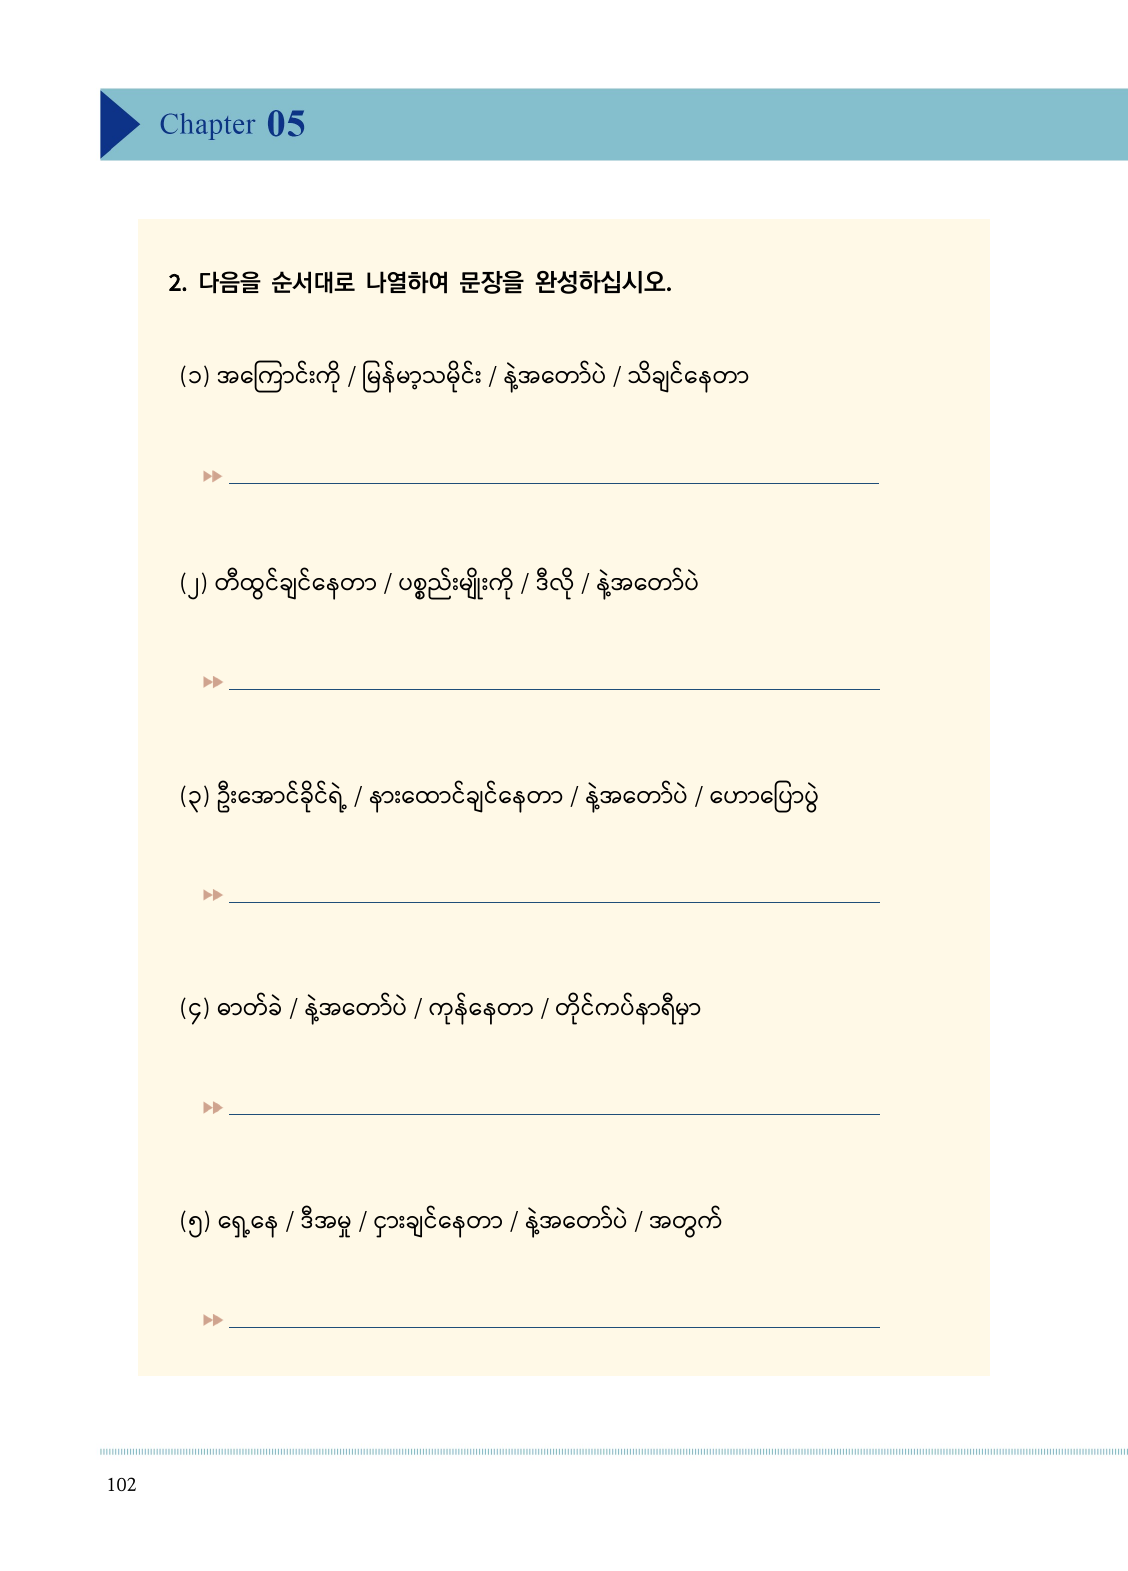 Chapter 05
2. 다음을 순서대로 나열하여 문장을 완성하십시오.
(၁) အကြောင်းကို / မြန်မာ့သမိုင်း / နဲ့အတော်ပဲ / သိချင်နေတာ
(၂) တီထွင်ချင်နေတာ / ပစ္စည်းမျိုးကို / ဒီလို / နဲ့အတော်ပဲ
(၃) ဦးအောင်ခိုင်ရဲ့ / နားထောင်ချင်နေတာ / နဲ့အတော်ပဲ / ဟောပြောပွဲ
(၄) ဓာတ်ခဲ / နဲ့အတော်ပဲ / ကုန်နေတာ / တိုင်ကပ်နာရီမှာ
(၅) ရှေ့နေ / ဒီအမှု / ငှားချင်နေတာ / နဲ့အတော်ပဲ / အတွက်
102